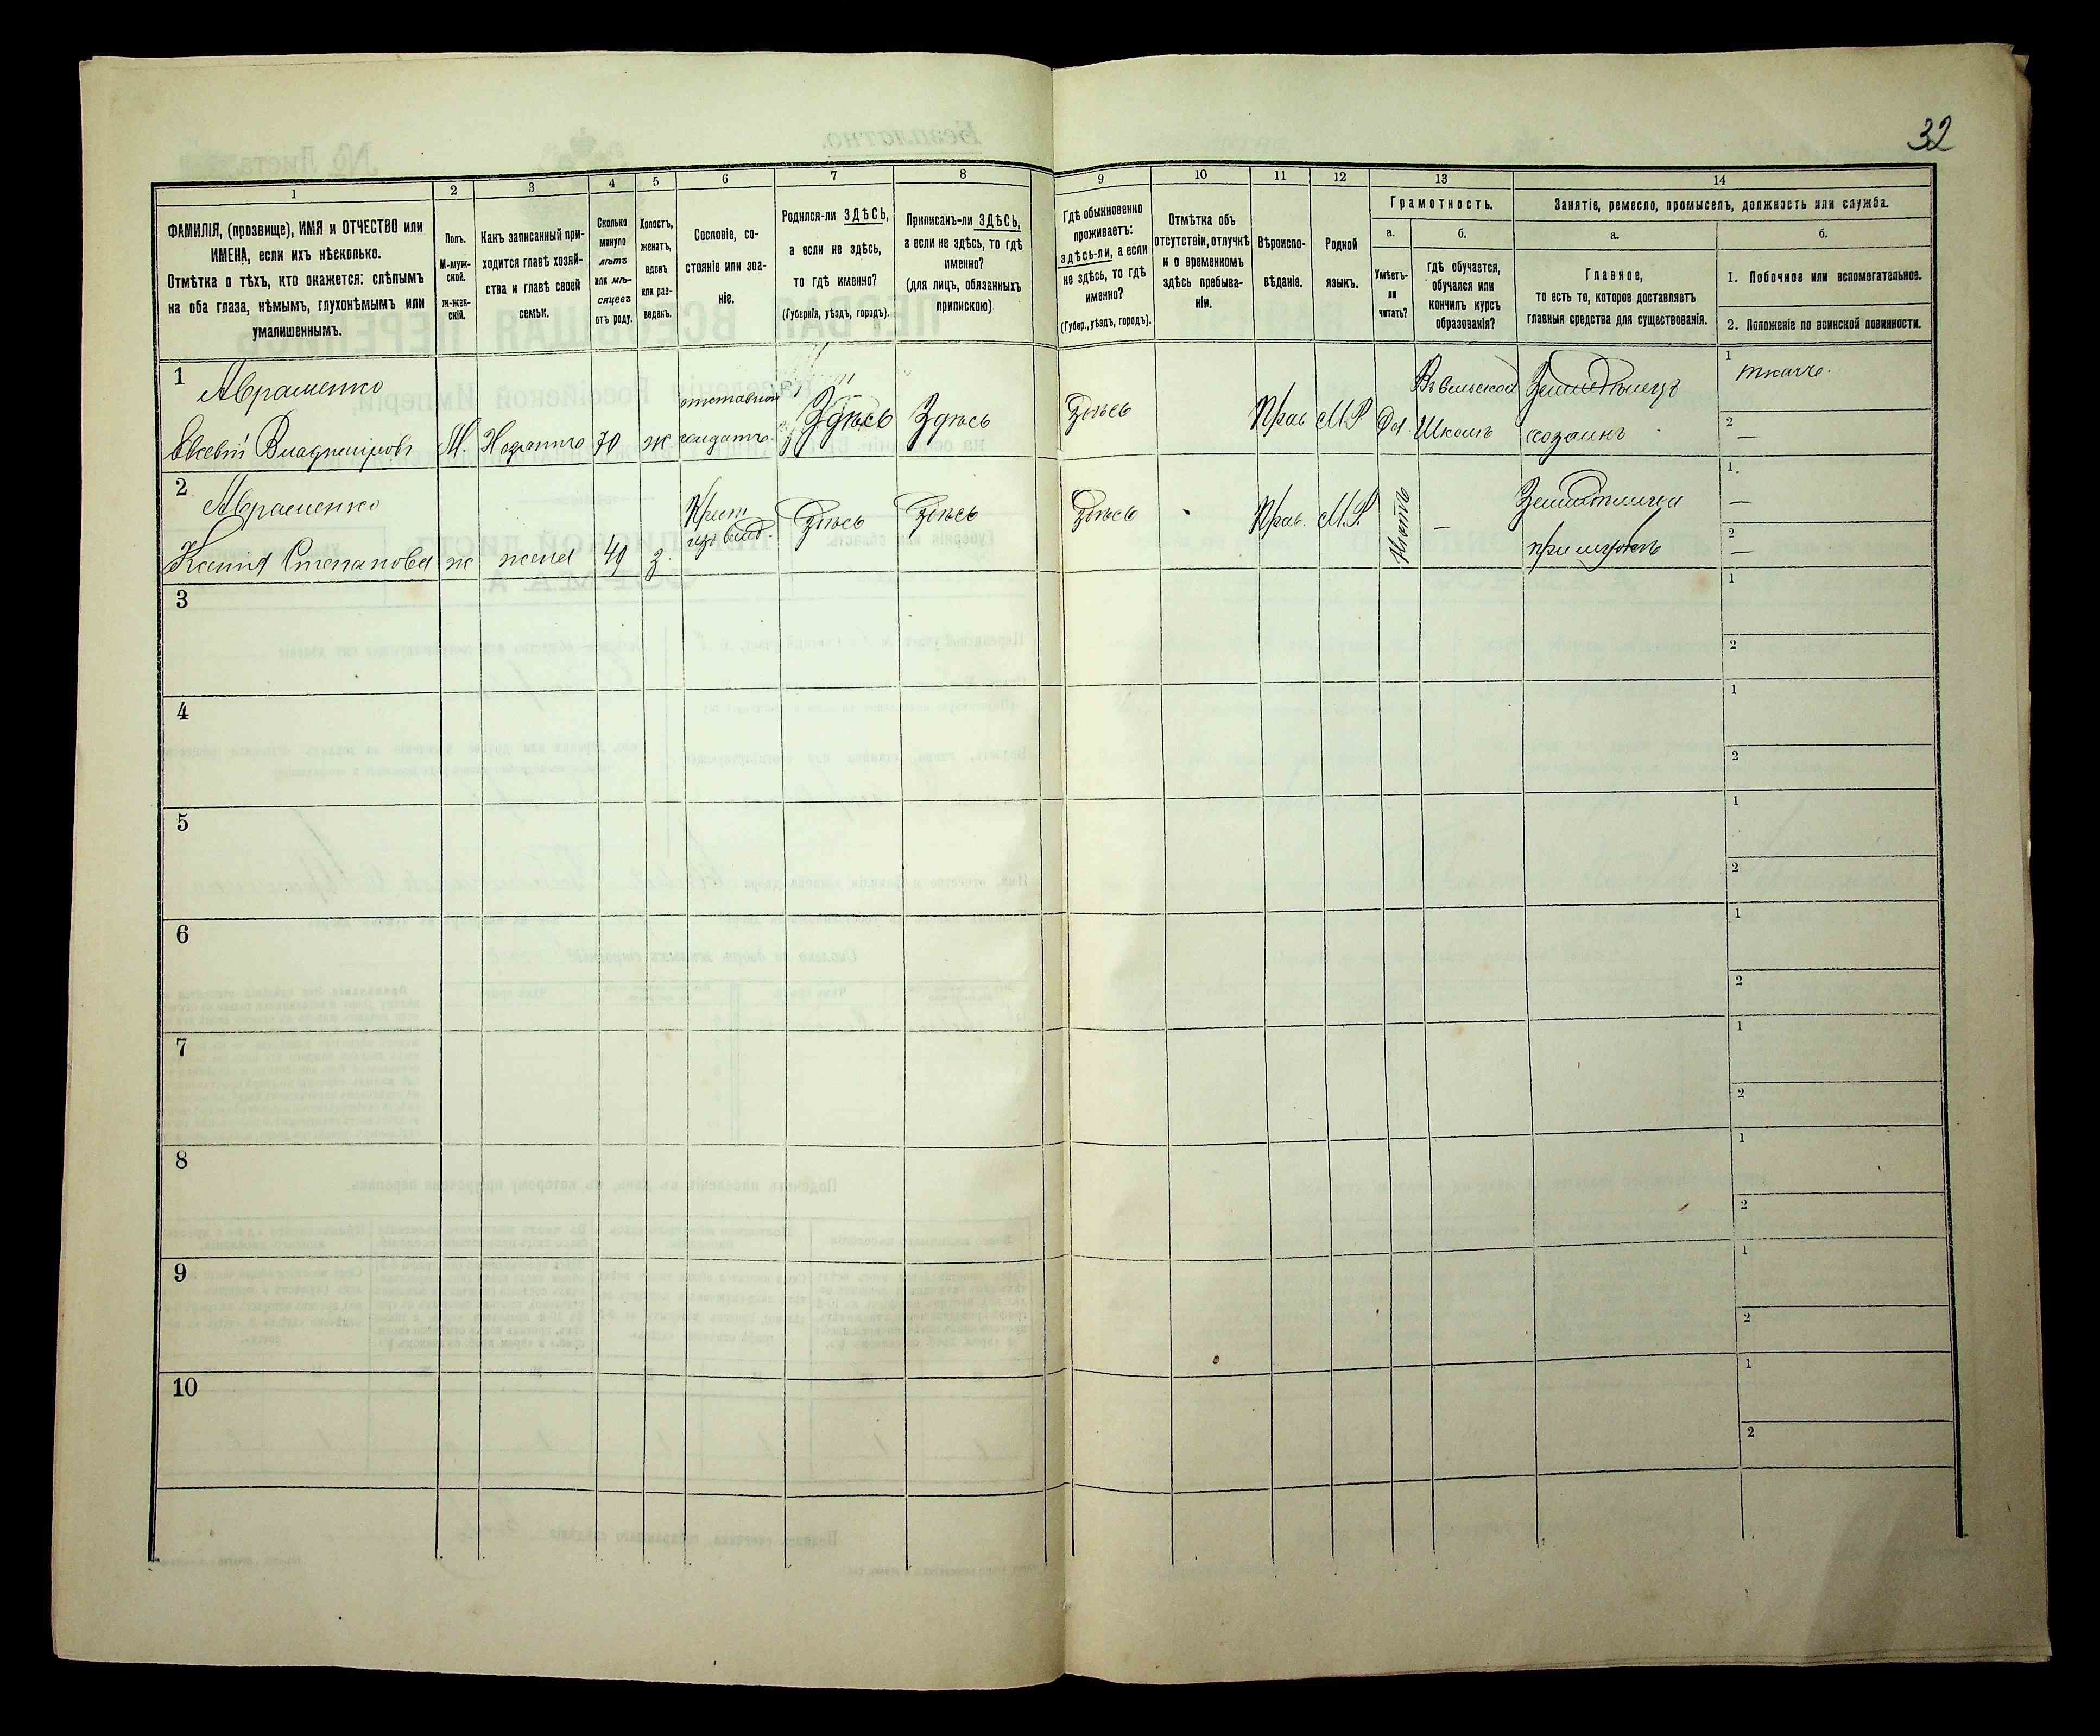 32
1
2
3
4
5
6
7
8
9
10
11
12
13
14
ФАМИЛІЯ, (прозвище), ИМЯ и ОТЧЕСТВО или
ИМЕНА, если ихъ нѣсколько.
Отмѣтка о тѣхъ, кто окажется: слѣпымъ
на оба глаза, нѣмымъ, глухонѣмымъ или
умалишеннымъ.
Полъ.
М-муж-
ской.
Ж-жен-
скій.
Какъ записанный при-
ходится главѣ хозяй-
ства и главѣ своей
семьи.
Сколько
минуло
лѣтъ
или мѣ-
сяцевъ
отъ роду.
Холостъ,
женатъ,
вдовъ
или раз-
веденъ.
Сословіе, со-
стояніе или зва-
ніе.
Родился-ли ЗДѢСЬ,
а если не здѣсь,
то гдѣ именно?
(Губернія, уѣздъ, городъ).
Приписанъ-ли ЗДѢСЬ,
а если не здѣсь, то гдѣ
именно?
(для лицъ, обязанныхъ
припискою)
Гдѣ обыкновенно
проживаетъ:
здѣсь-ли, а если
не здѣсь, то гдѣ
именно?
(Губер., уѣздъ, городъ).
Отмѣтка объ
отсутствіи, отлучкѣ
и о временномъ
здѣсь пребыва-
ніи.
Вѣроиспо-
вѣданіе.
Родной
языкъ.
Грамотность.
а.
Умѣетъ-
ли
читать?
б.
гдѣ обучается,
обучался или
кончилъ курсъ
образованія?
Занятіе, ремесло, промыселъ, должность или служба.
а.
Главное,
то есть то, которое доставляетъ
главныя средства для существованія.
б.
1. Побочное или вспомогательное.
2. Положеніе по воинской повинности.
1
Авраменко
Евсевій Владиміровъ
М.
70
ж
отставной
солдатъ.
Здѣсь
Здѣсь
Здѣсь
Прав
М.Р
Да.
Школѣ
хозяинъ
1
ткачъ.
2
—
2
Авраменко
Ксенія Степанова
ж
жена
49
з.
Крест
изъ влад.
Здѣсь
Здѣсь
Здѣсь
Прав.
М.Р.
Нѣтъ
—
при мужѣ
1.
—
2
—
3
1
2
4
1
2
5
1
2
6
1
2
7
1
2
8
1
2
9
1
2
10
1
2